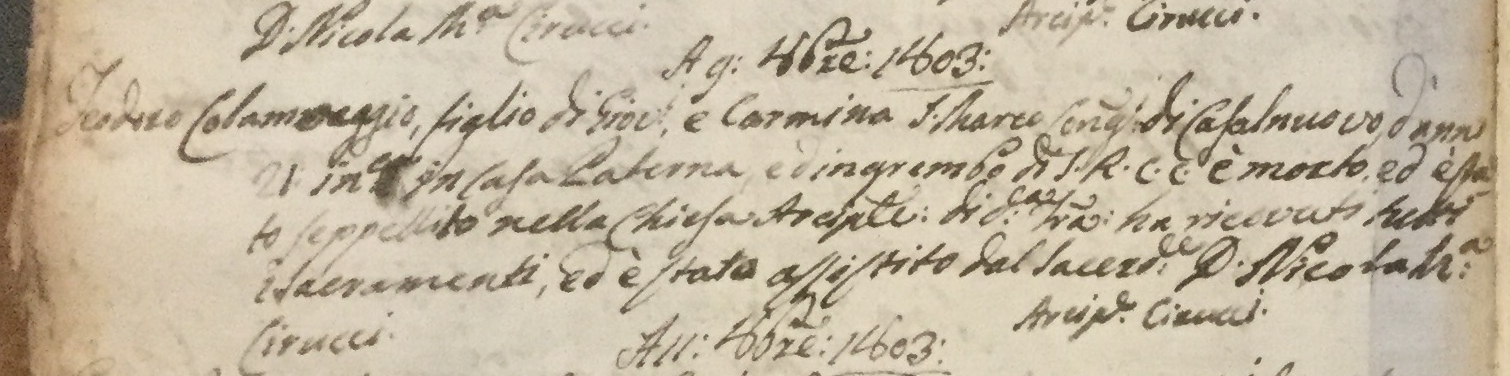 D. Nicola M.a Cirucci.
Arcip.e Cirucci.
A 9: 8bre: 1803:
Teodoro Colamoreggio, figlio di Giov:, e Carmina S. Marco Coniug: di Casalnuovo, d'anni
21 in c.a in Casa Paterna, ed in grembo di S. R. C. C. è morto, ed è sta
to seppellito nella Chiesa Arciple: di d.a Tra: ha ricevuti tutti
i Sacramenti, ed è stato assistito dal Sacerd.te D. Nicola M:a
Cirucci.
Arcip.e Cirucci.
A 11: 8bre: 1803: